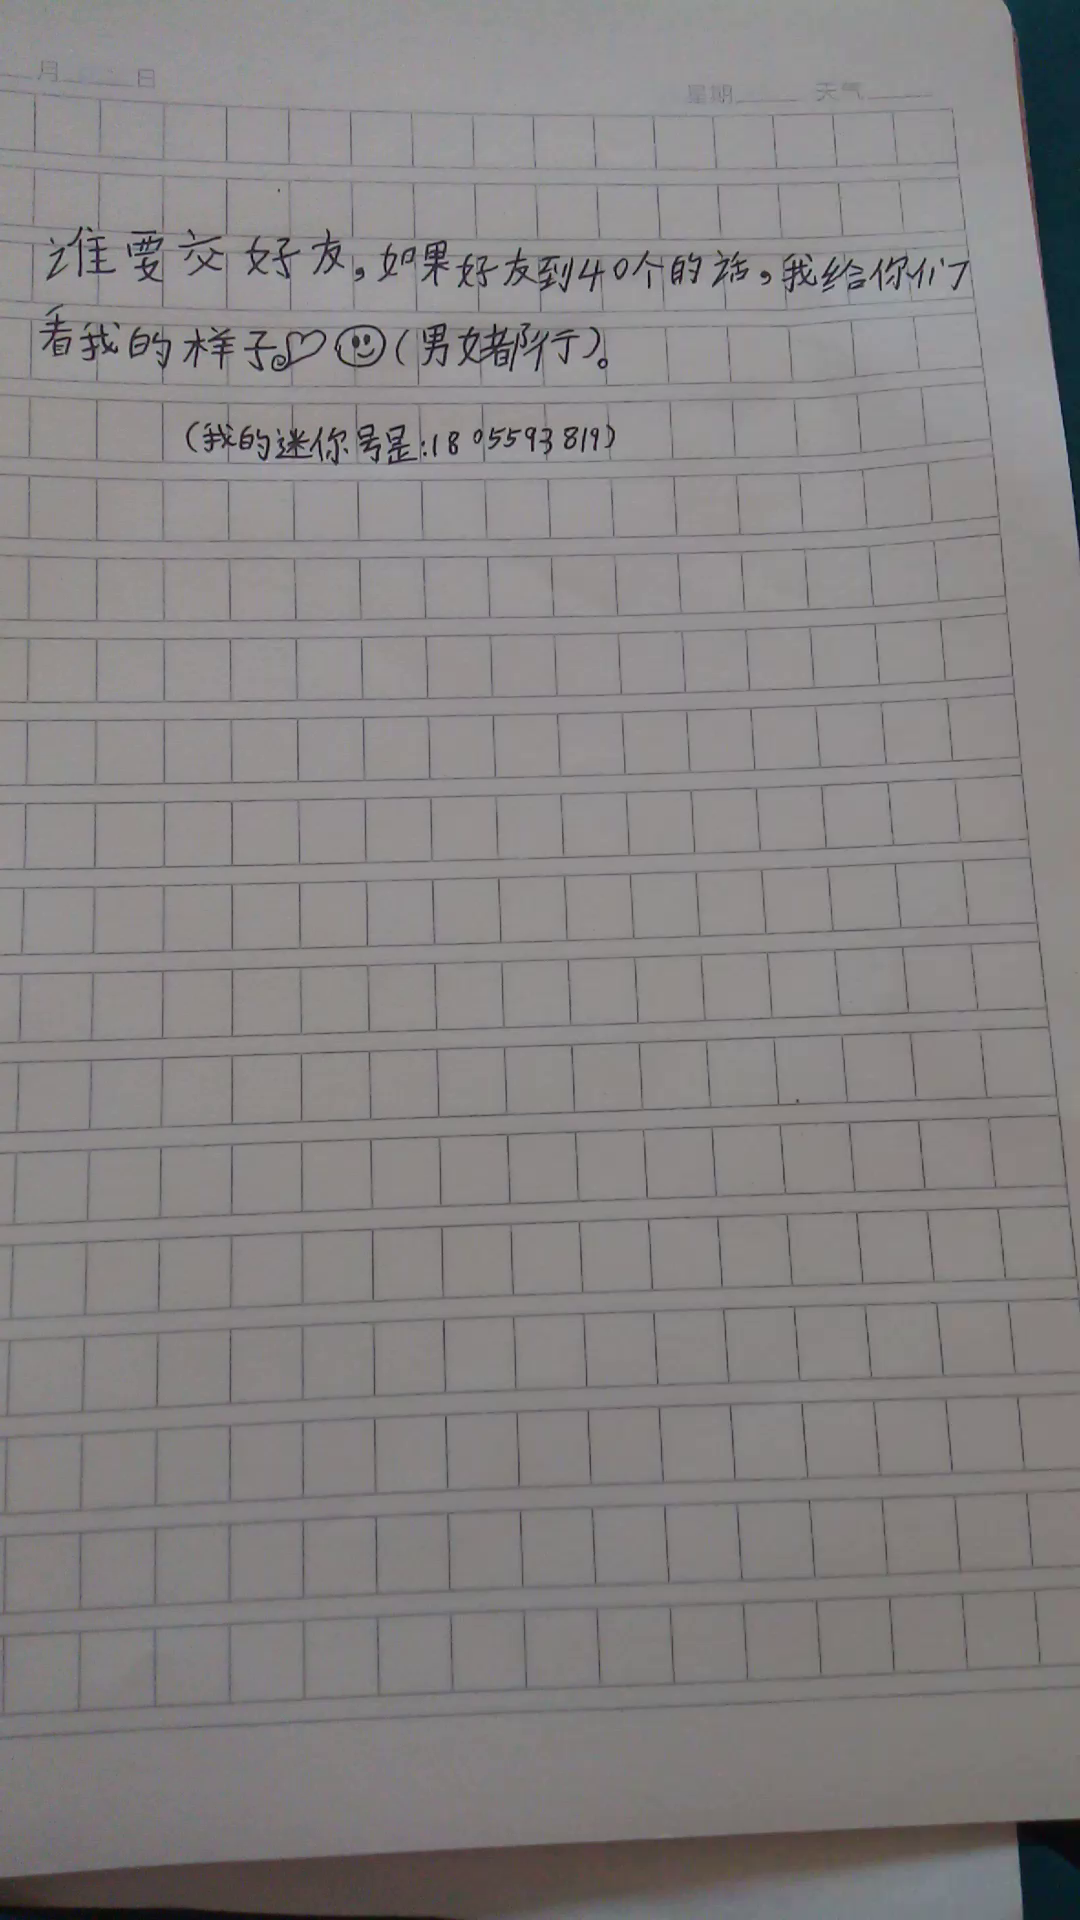 月 日
星期 天气
谁要交好友,如果好友到40个的话,我给你们
看我的样子。(男女都行)。
(我的迷你号是:1805593819)